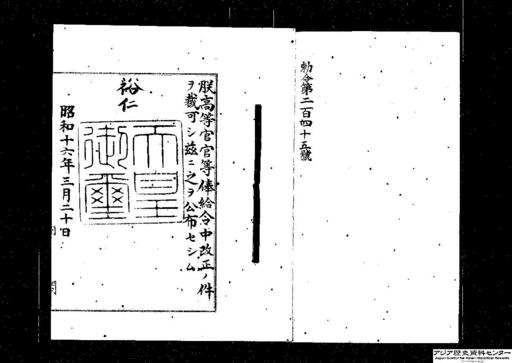 勅令第二百四十五號
朕高等官官等俸給令中改正ノ件
ヲ裁可シ玆ニ之ヲ公布セシム
裕仁
天皇
御璽
昭和十六年三月二十日
アジア歴史資料センター
Japan Center for Asian Historical Records